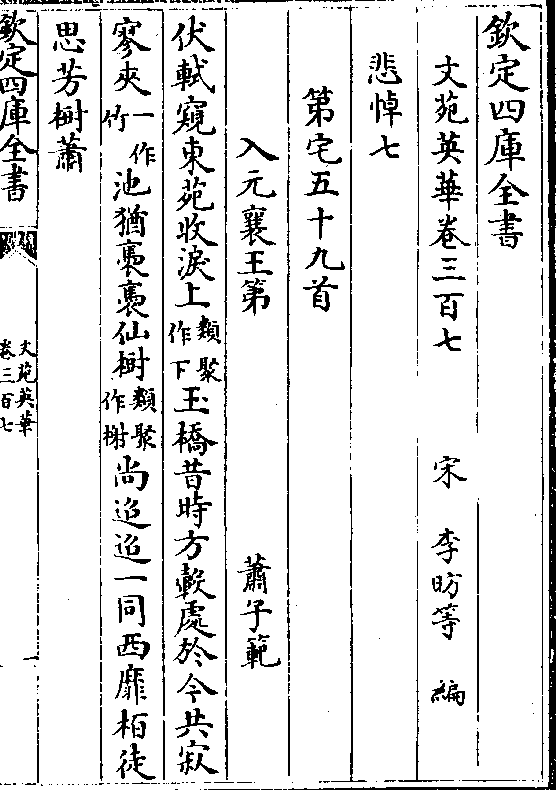 欽定四庫全書
文苑英華卷三百七
宋 李昉等 編
悲悼七
第宅五十九首
入元襄王第 蕭子範
伏軾窺東苑收淚上類聚作下玉橋昔時方轂處於今共寂
寥夾一作竹池猶裊裊仙樹類聚作榭尚迢迢一同西靡柏徒
思芳樹蕭
欽定四庫全書
文苑英華
卷三百七
一